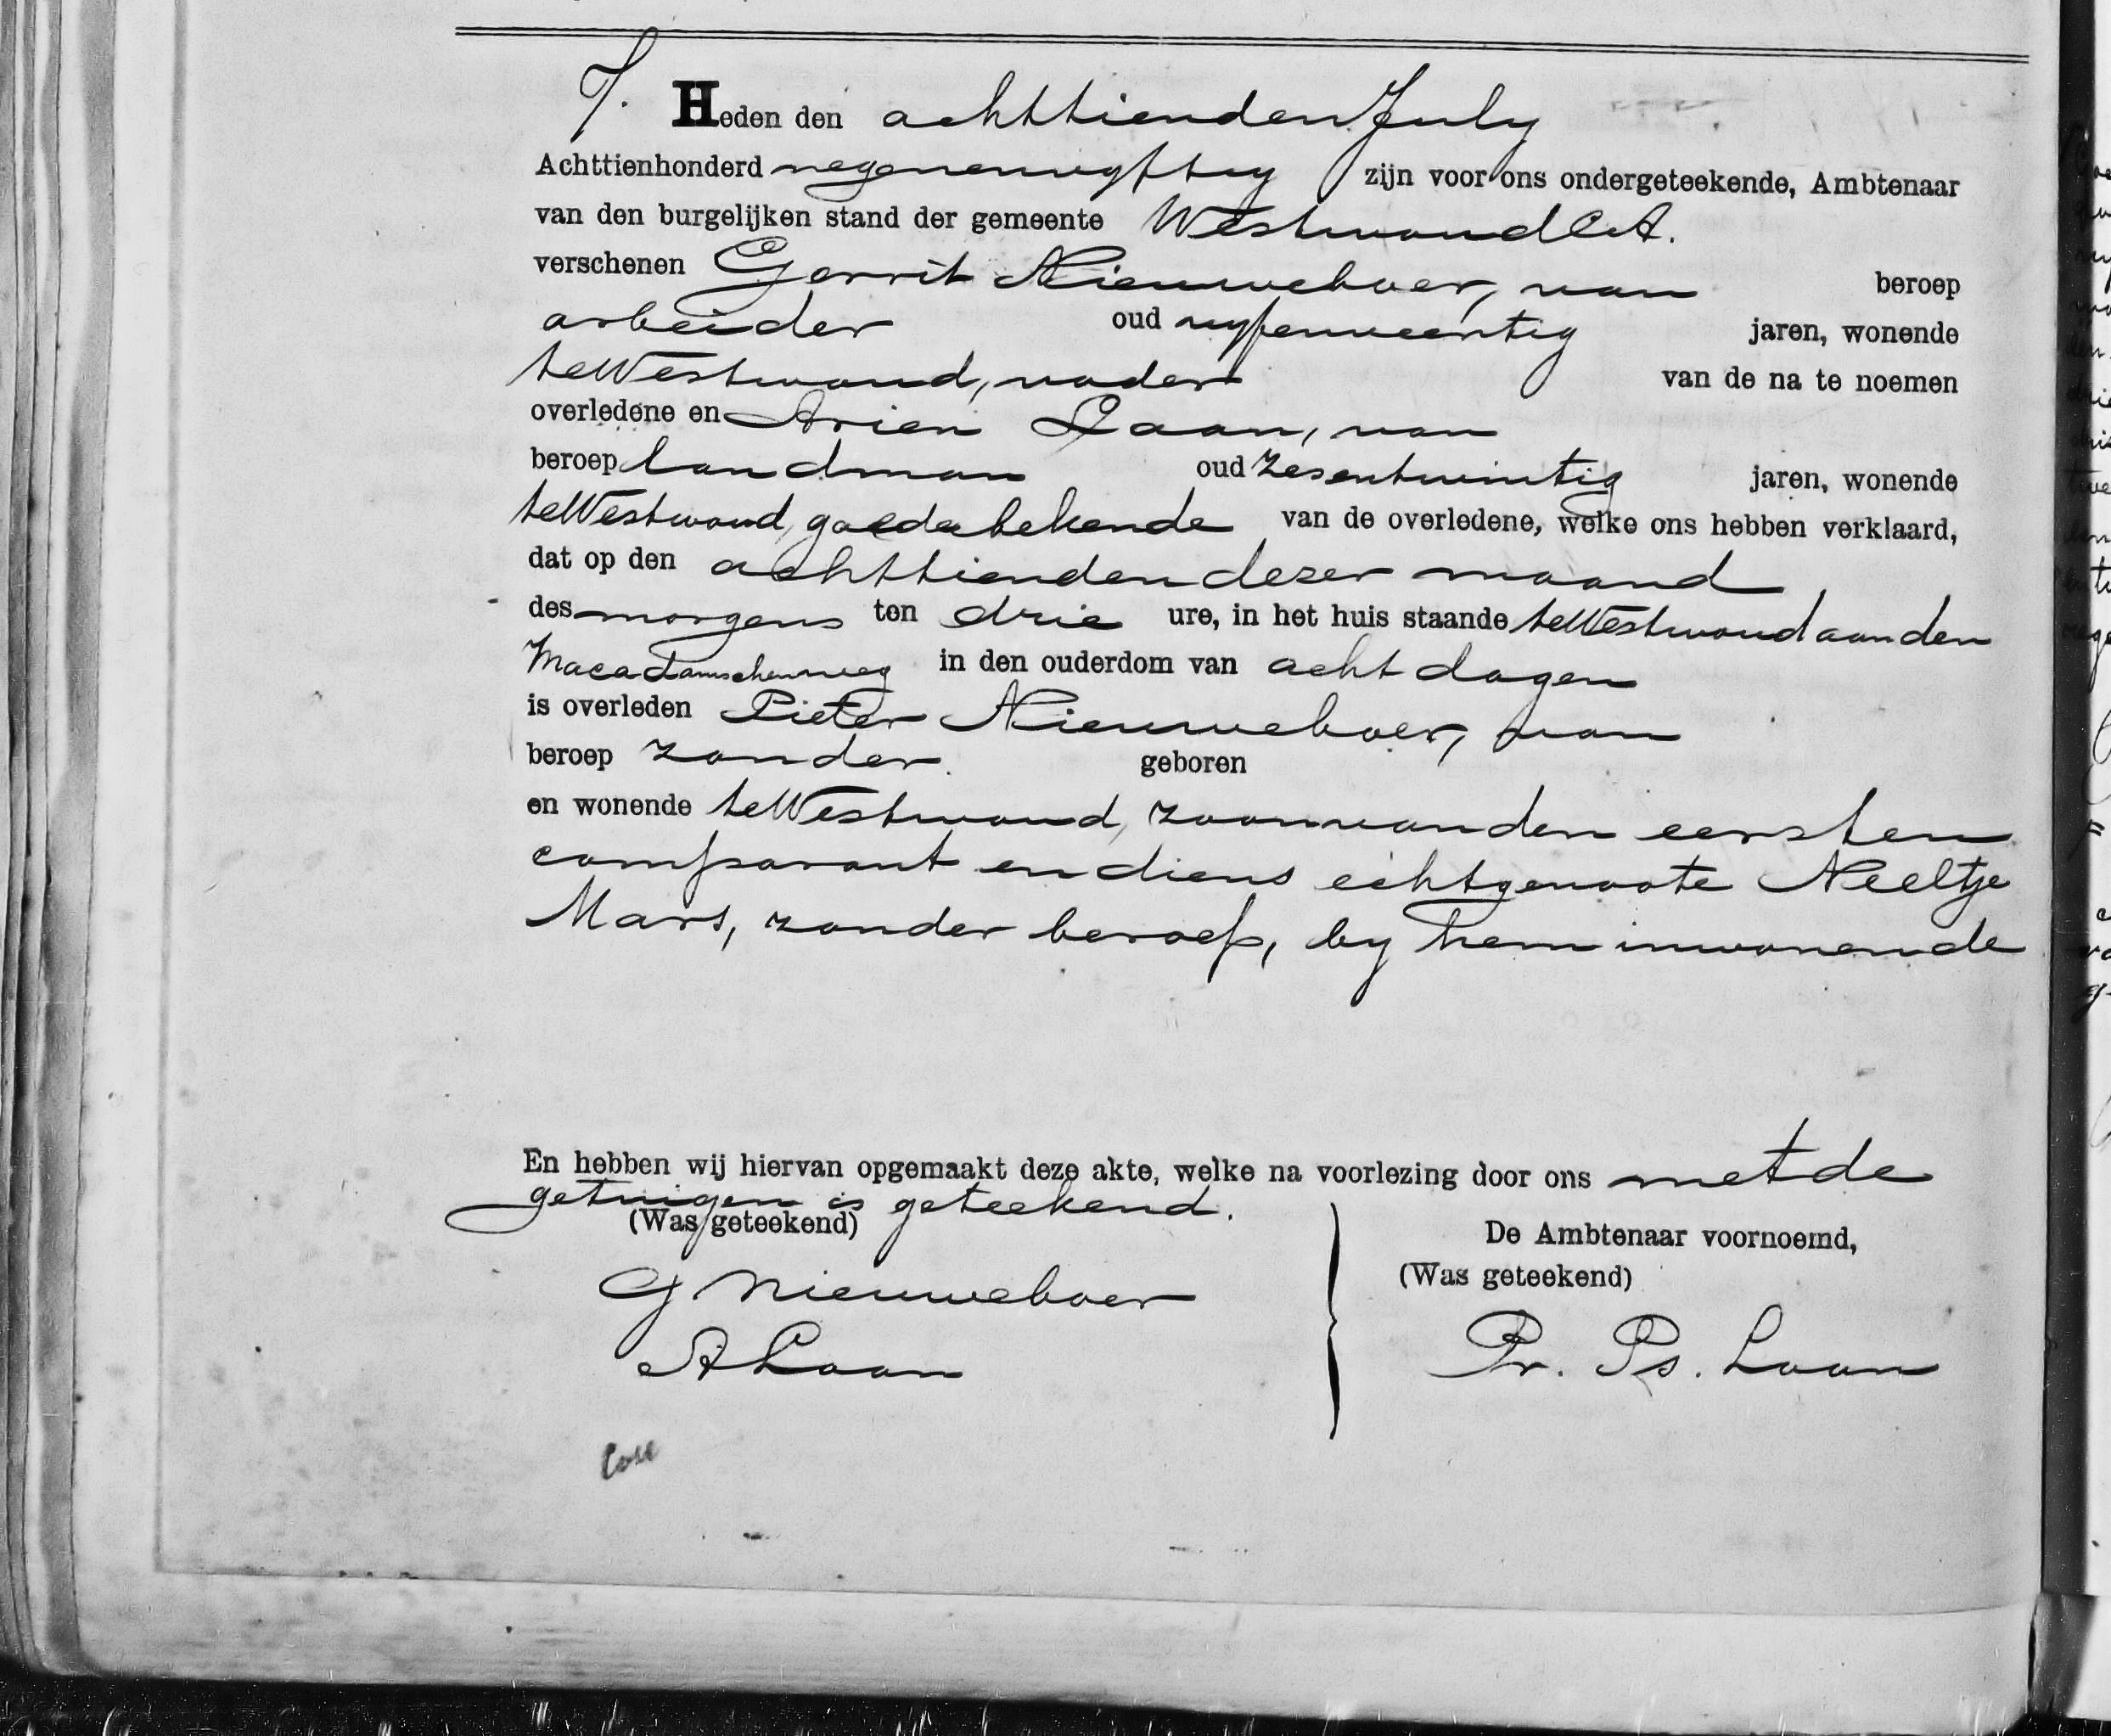 7. Heden den achttienden July
Achttienhonderd negenenvyftig zijn voor ons ondergeteekende, Ambtenaar
van den burgelijken stand der gemeente Westwoud C.A.
verschenen Gerrit Nieuweboer, van beroep
arbeider oud vyfenveertig jaren, wonende
te Westwoud, vader van de na te noemen
overledene en Arien Laan, van
beroep landman oud zesentwintig jaren, wonende
te Westwoud, goede bekende van de overledene, welke ons hebben verklaard,
dat op den achttienden dezer maand
des morgens ten drie ure, in het huis staande te Westwoud aan den
Macadamschenweg in den ouderdom van acht dagen
is overleden Pieter Nieuweboer, van
beroep zonder. geboren
en wonende te Westwoud, zoon van den eersten
comparant en diens echtgenoote Neeltje
Mars, zonder beroep, by hem inwonende
En hebben wij hiervan opgemaakt deze akte, welke na voorlezing door ons met de
getuigen is geteekend.
(Was geteekend) De Ambtenaar voornoemd,
(Was geteekend)
G Nieuweboer
A Laan Pr. Ps. Laan